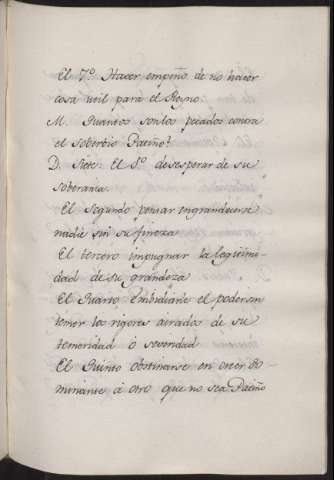 El 7º. Hacer empeño de no hacer
cosa util para el Reyno.
M. Quantos son los pecados contra
el soberbio Patiño?
D. Siete. El 1º desesperar de su
soberania.
El segundo pensar engrandecerse
nadie sin su fineza
El tercero impugnar la legitimi-
dad de su grandeza
El Quarto Embidiarle el poder sin
temer los rigores airados de su
temeridad ó severidad
El Quinto obstinarse en creer Do-
minante á otro que no sea Patiño